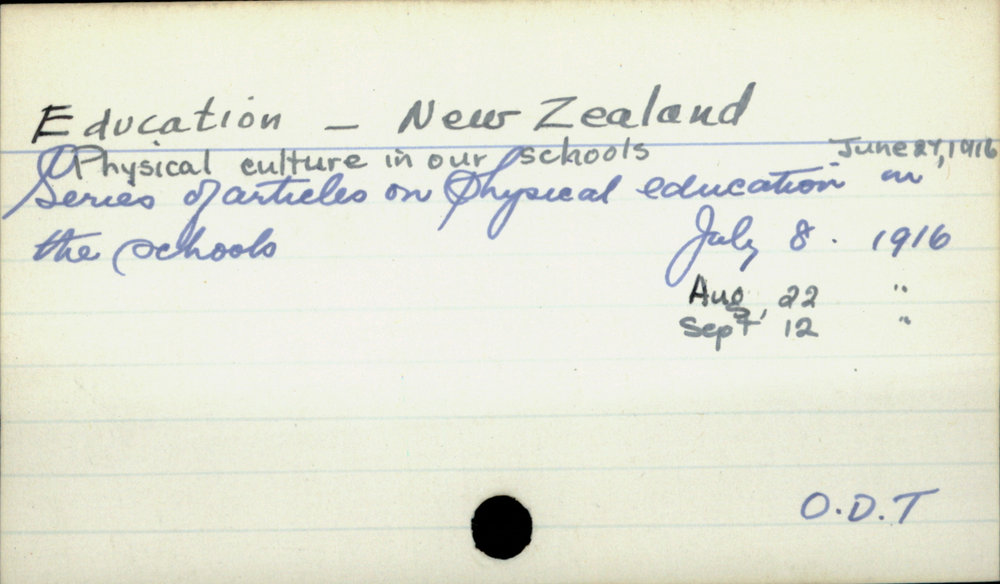 Education — New Zealand
Physical culture in our schools June 27, 1916
Series of articles on Physical education in
the schools July 8. 1916
Aug, 22 "
Sept 12 "
O.D.T